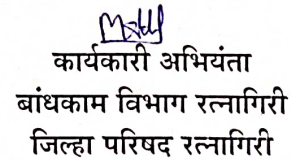 कार्यकारी अभियंता
बांधकाम विभाग रत्नागिरी
जिल्हा परिषद रत्नागिरी